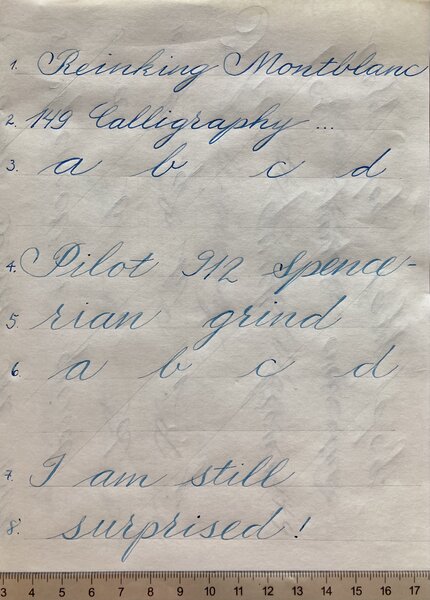 1. Reinking Montblanc
2. 149 Calligraphy ...
3. a b c d
4. Pilot 912 Spence-
5. rian grind
6. a b c d
7. I am still
8. surprised!
3 4 5 6 7 8 9 10 11 12 13 14 15 16 17